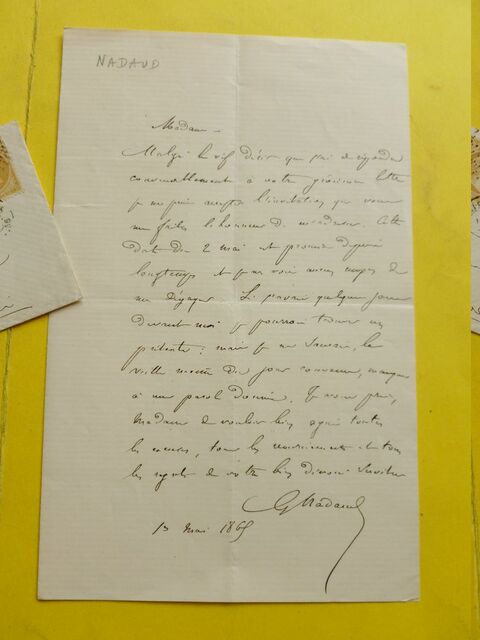 NADAUD
Madame
Malgré le vif désir que j'ai de répondre
convenablement à votre gracieuse lettre
je ne puis accepter l'invitation que vous
me faites l'honneur de m'adresser. Cette
date du 2 mai est promise depuis
longtemps et je ne vois aucun moyen de
me dégager. Si j'avais quelques jours
devant moi je pourrais trouver un
prétexte; mais je ne saurais, la
veille même du jour convenu, manquer
à ma parole donnée. Je vous prie,
Madame de vouloir bien agréer toutes
les excuses, tous les remerciements et tous
les regrets de votre bien dévoué serviteur
G Nadaud
1 mai 1865